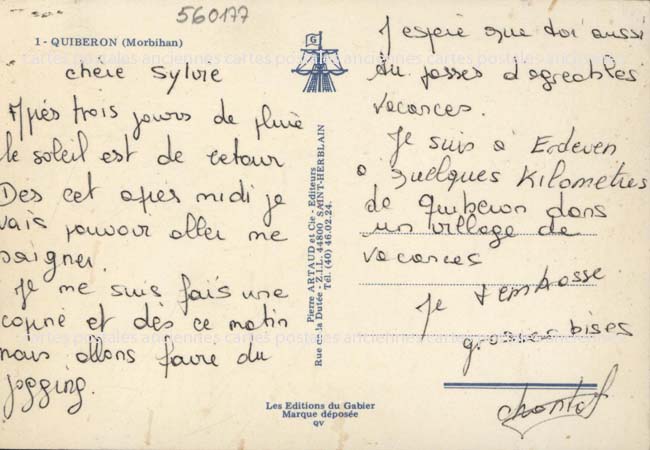 560177
1 - QUIBERON (Morbihan)
chère Sylvie
Après trois jours de pluie
le soleil est de retour
Des cet après midi je
vais pouvoir aller me
baigner.
Je me suis fais une
copine et dès ce matin
nous allons faire du
jogging.
Pierre ARTAUD et Cie - Editeurs
Rue de la Dutée - Z.I.L. 44800 SAINT-HERBLAIN
Tél. (40) 46.02.24.
Les Editions du Gabier
Marque déposée
QV
J'espère que toi aussi
tu passes d'agreables
vacances.
Je suis à Erdeven
a quelques Kilomètres
de quiberon dans
un village de
vacances
Je t'embrasse
grosses bises
Chantal
cartes postales anciennes cartes postales anciennes cartes postales anciennes